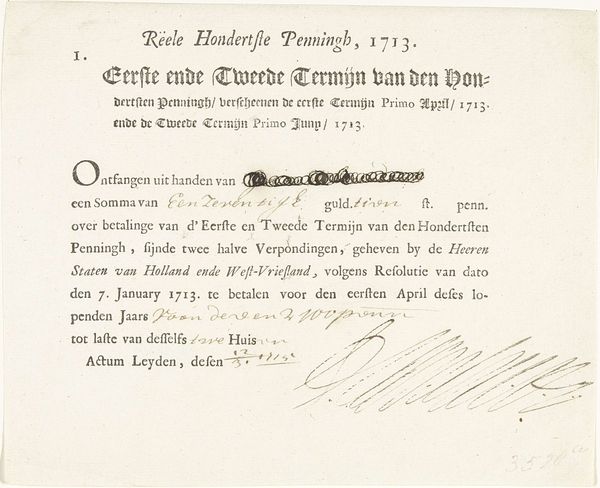 Rëele Hondertste Penningh, 1713.
1.
Eerste ende Tweede Termijn van den Hon-
dertsten Penningh/ verscheenen de eerste Termijn Primo April/ 1713.
ende de Tweede Termijn Primo Juny/ 1713.
Ontfangen uit handen van
een Somma van Een Zeventigh guld. tien st. penn.
over betalinge van d'Eerste en Tweede Termijn van den Hondertsten
Penningh, sijnde twee halve Verpondingen, geheven by de Heeren
Staten van Holland ende West-Vriesland, volgens Resolutie van dato
den 7. January 1713. te betalen voor den eersten April deses lo-
penden Jaars
tot laste van desselfs twe Huisen
Actum Leyden, desen